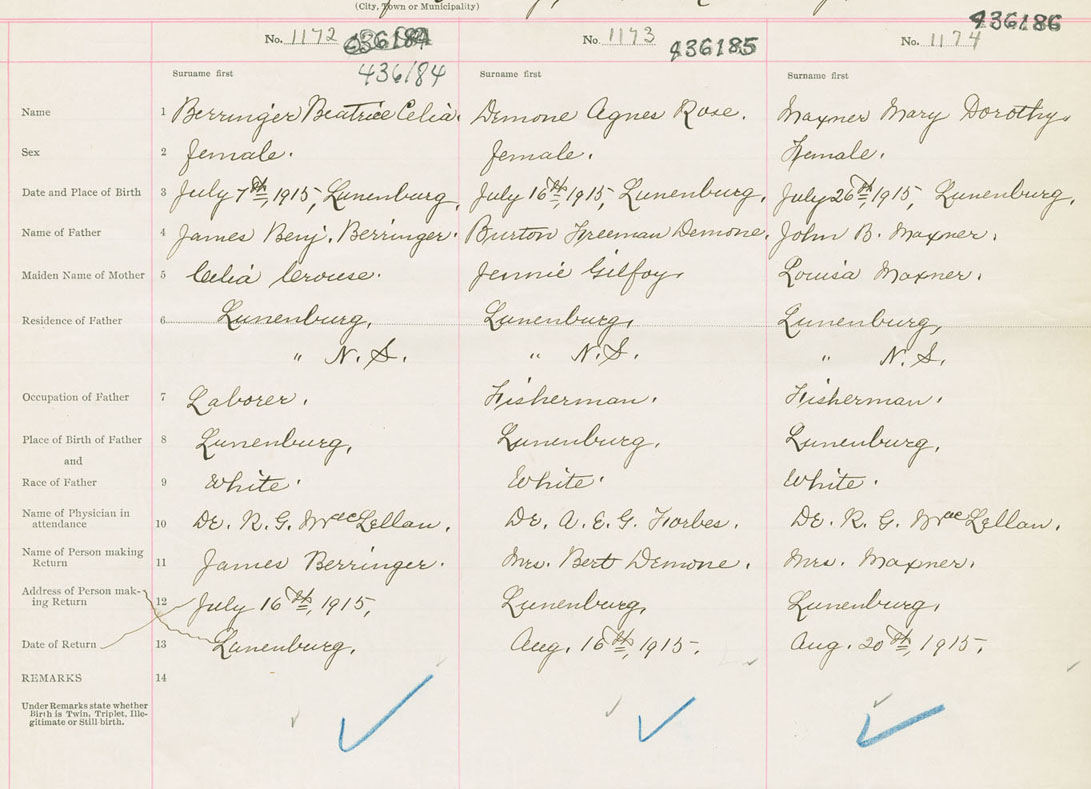 (City, Town or Municipality)
No. 1172 436184 No. 1173 436185 No. 1174 436186
436184
Surname first Surname first Surname first
Name 1 Berringer Beatrice Celia. Demone Agnes Rose. Maxner Mary Dorothy.
Sex 2 female. female. Female.
Date and Place of Birth 3 July 7th, 1915, Lunenburg. July 16th, 1915, Lunenburg. July 26th, 1915, Lunenburg.
Name of Father 4 James Benj. Berringer. Burton Freeman Demone. John B. Maxner.
Maiden Name of Mother 5 Celia Crouse. Jennie Gilfoy. Louisa Maxner.
Residence of Father 6 Lunenburg, Lunenburg, Lunenburg,
" N.S. " N.S. " N.S.
Occupation of Father 7 Laborer. Fisherman. Fisherman.
Place of Birth of Father 8 Lunenburg, Lunenburg, Lunenburg,
and
Race of Father 9 White. White. White.
Name of Physician in
attendance 10 Dr. R. G. MacLellan. Dr. A. E. G. Forbes. Dr. R. G. MacLellan.
Name of Person making
Return 11 James Berringer. Mrs. Bert Demone. Mrs. Maxner.
Address of Person mak-
ing Return 12 July 16th, 1915, Lunenburg, Lunenburg,
Date of Return 13 Lunenburg. Aug. 16th, 1915. Aug. 20th, 1915.
REMARKS 14
Under Remarks state whether
Birth is Twin, Triplet, Ille-
gitimate or Still-birth.